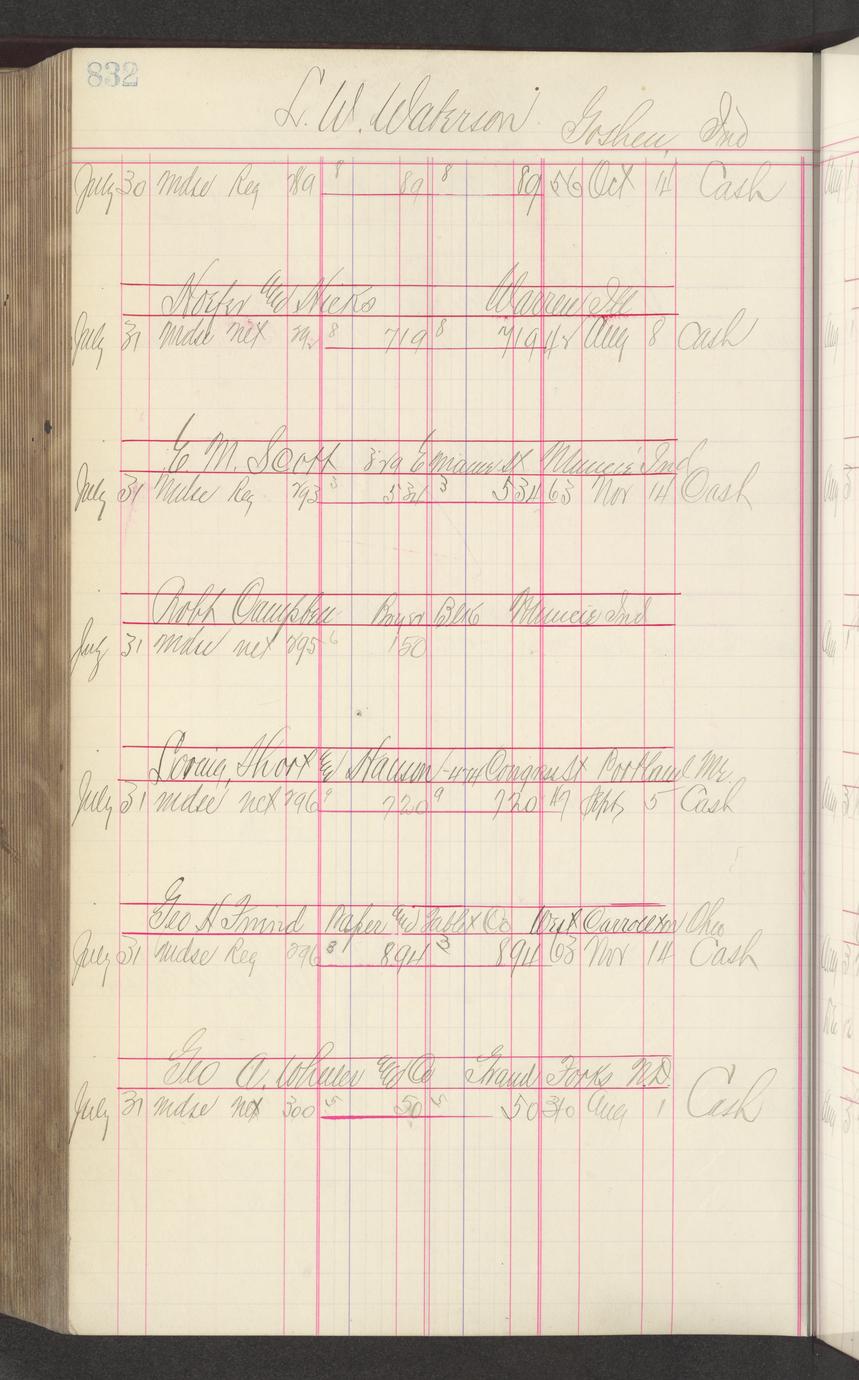 832
L. W. Waterson Goshen, Ind
July 30 Mdse Reg 289 8 89 8 89 56 Oct 14 Cash
Hoefer and Hicks Warren Ill
July 31 Mdse net 292 8 719 8 719 42 Aug 8 Cash
E. M. Scott 329 E St Muncie Ind
July 31 Mdse Reg 293 3 534 3 534 63 Nov 14 Cash
Robt Campbell Blk Muncie Ind
July 31 Mdse net 295 6 150
Loring, Short and Harmon 474 Congress St Portland Me.
July 31 Mdse net 296 9 720 9 720 47 Sept 5 Cash
Geo H Friend Paper and Tablet Co West Carrollton Ohio
July 31 Mdse Reg 296 3 894 3 894 63 Nov 14 Cash
Geo A. Wheeler and Co Grand Forks N.D.
July 31 Mdse net 300 5 50 5 50 340 Aug 1 Cash